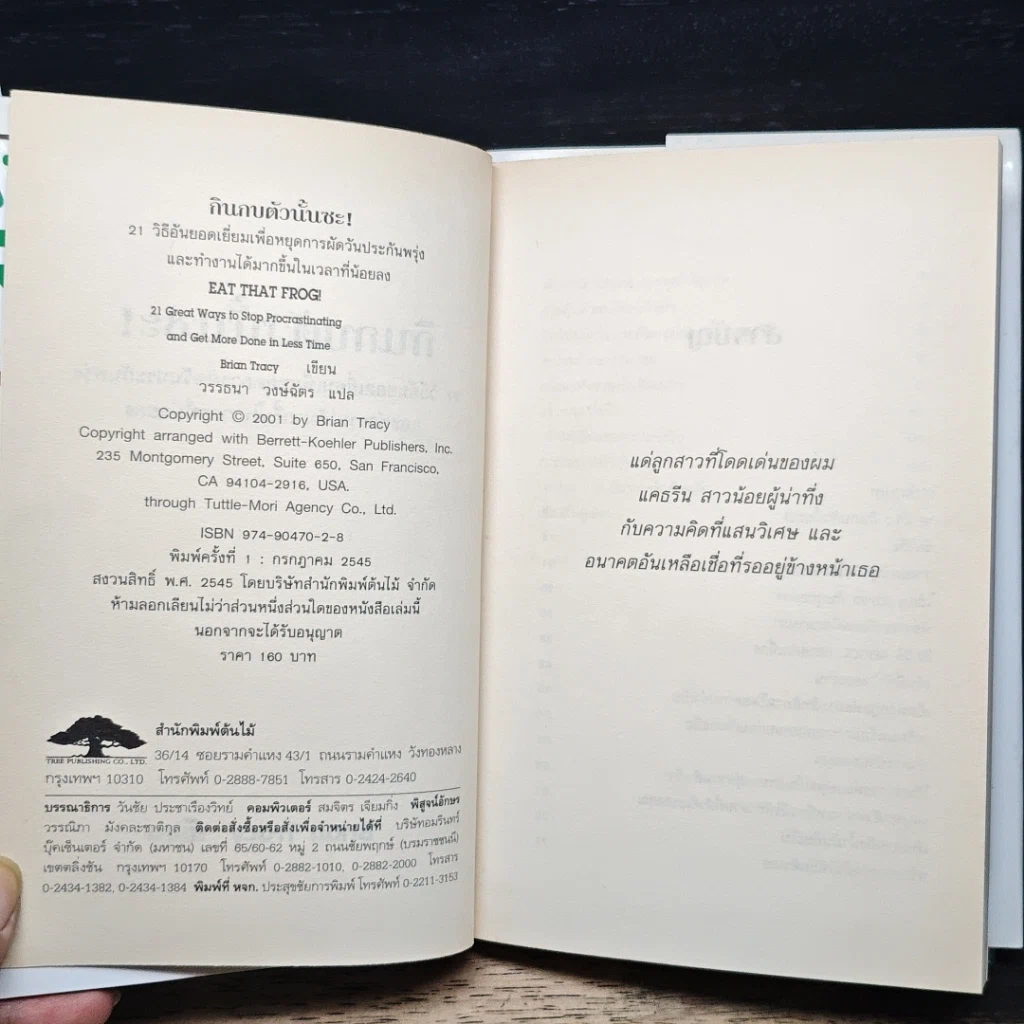 กินกบตัวนั้นซะ!
21 วิธีอันยอดเยี่ยมเพื่อหยุดการผัดวันประกันพรุ่ง
และทำงานได้มากขึ้นในเวลาที่น้อยลง
EAT THAT FROG!
21 Great Ways to Stop Procrastinating
and Get More Done in Less Time
Brian Tracy เขียน
วรรธนา วงษ์ฉัตร แปล
Copyright © 2001 by Brian Tracy
Copyright arranged with Berrett-Koehler Publishers, Inc.
235 Montgomery Street, Suite 650, San Francisco,
CA 94104-2916, USA.
through Tuttle-Mori Agency Co., Ltd.
ISBN 974-90470-2-8
พิมพ์ครั้งที่ 1 : กรกฎาคม 2545
สงวนสิทธิ์ พ.ศ. 2545 โดยบริษัทสำนักพิมพ์ต้นไม้ จำกัด
ห้ามลอกเลียนไม่ว่าส่วนหนึ่งส่วนใดของหนังสือเล่มนี้
นอกจากจะได้รับอนุญาต
ราคา 160 บาท
TREE PUBLISHING CO., LTD.
สำนักพิมพ์ต้นไม้
36/14 ซอยรามคำแหง 43/1 ถนนรามคำแหง วังทองหลาง
กรุงเทพฯ 10310 โทรศัพท์ 0-2888-7851 โทรสาร 0-2424-2640
บรรณาธิการ วันชัย ประชาเรืองวิทย์ คอมพิวเตอร์ สมจิตร เจียมกิ่ง พิสูจน์อักษร
วรรณิภา มังคละชาติกุล ติดต่อสั่งซื้อหรือสั่งเพื่อจำหน่ายได้ที่ บริษัทอมรินทร์
บุ๊คเซ็นเตอร์ จำกัด (มหาชน) เลขที่ 65/60-62 หมู่ 2 ถนนชัยพฤกษ์ (บรมราชชนนี)
เขตตลิ่งชัน กรุงเทพฯ 10170 โทรศัพท์ 0-2882-1010, 0-2882-2000 โทรสาร
0-2434-1382, 0-2434-1384 พิมพ์ที่ หจก. ประสุขชัยการพิมพ์ โทรศัพท์ 0-2211-3153
แด่ลูกสาวที่โดดเด่นของผม
แคธรีน สาวน้อยผู้น่าทึ่ง
กับความคิดที่แสนวิเศษ และ
อนาคตอันเหลือเชื่อที่รออยู่ข้างหน้าเธอ